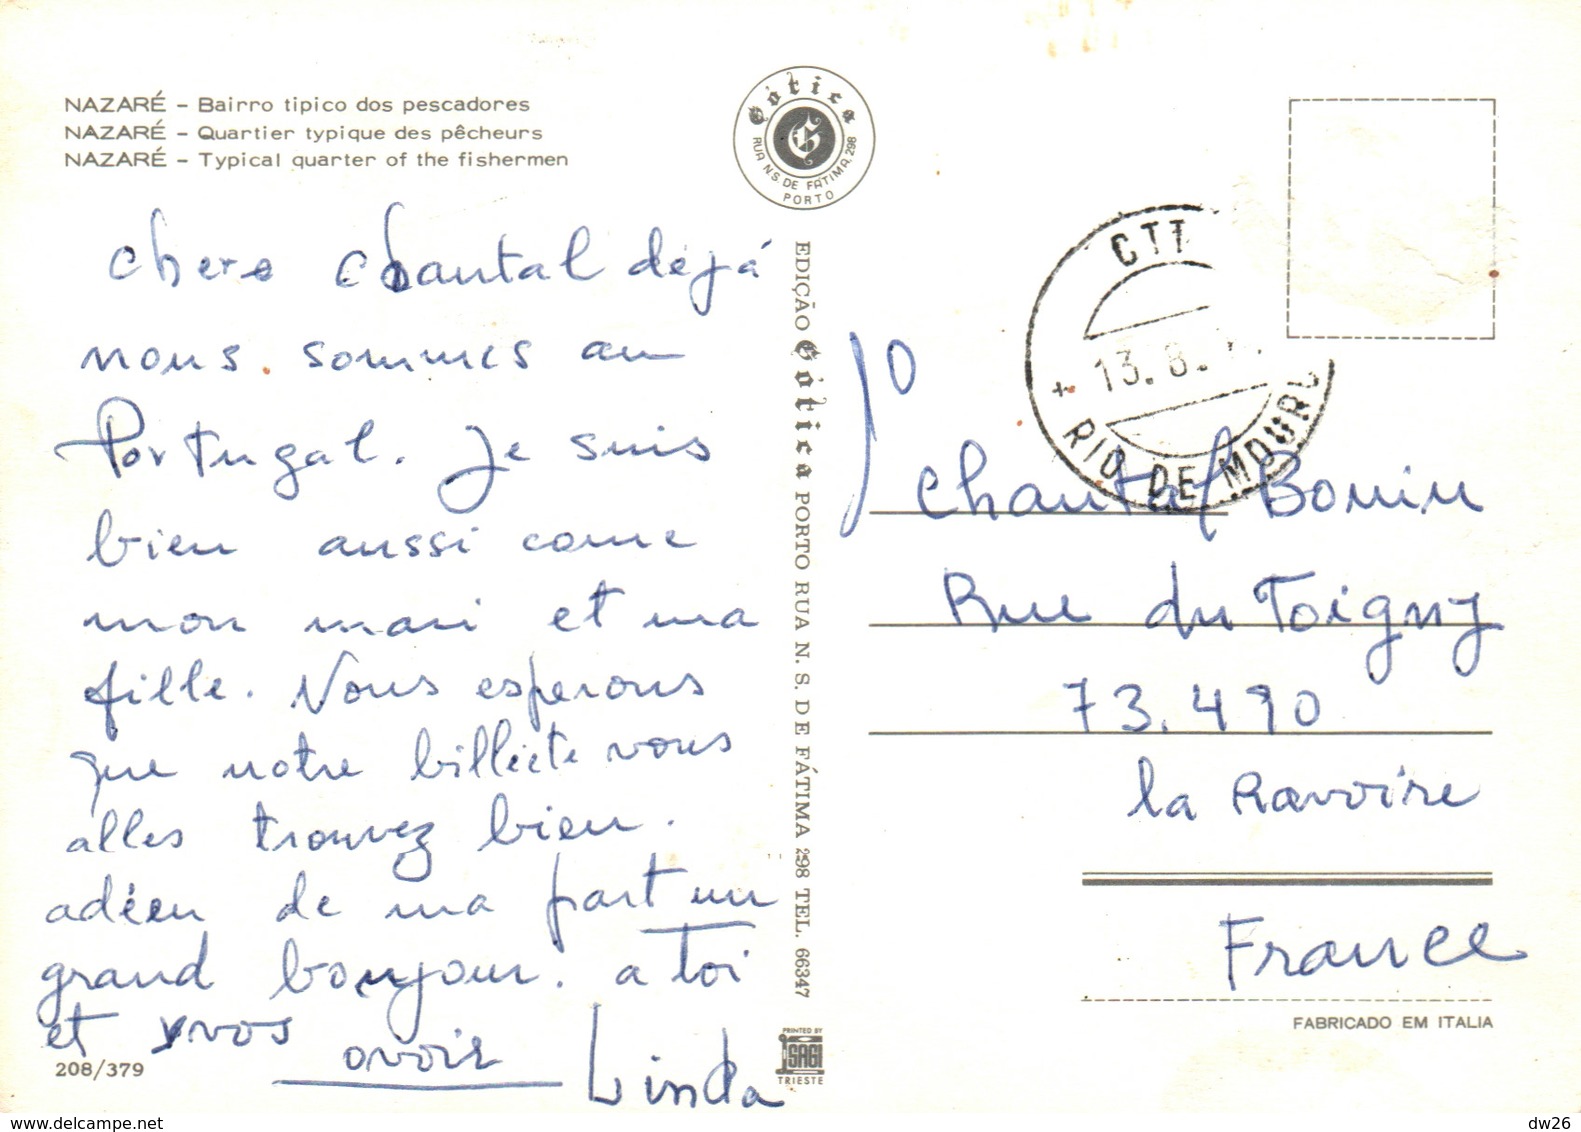 NAZARÉ – Bairro tipico dos pescadores
NAZARÉ – Quartier typique des pêcheurs
NAZARÉ – Typical quarter of the fishermen
chere chantal dejá
nous. sommes au
Portugal. Je suis
bien aussi come
mon mari et ma
fille. Nous esperons
que notre billete vous
alles trouvez bien.
de ma part un
grand bonjour. a toi
et vos
avoir
Linda
208/379
Gótica
RUA N.S. DE FÁTIMA, 298
PORTO
EDIÇÃO Gótica PORTO RUA N. S. DE FÁTIMA 298 TEL. 66347
PRINTED BY
SAGI
TRIESTE
CTT
13. 8.
RIO DE MOURO
Chantal Bonin
Rue du Toigny
73.490
la Ravoire
France
FABRICADO EM ITALIA
delcampe.net
dw26